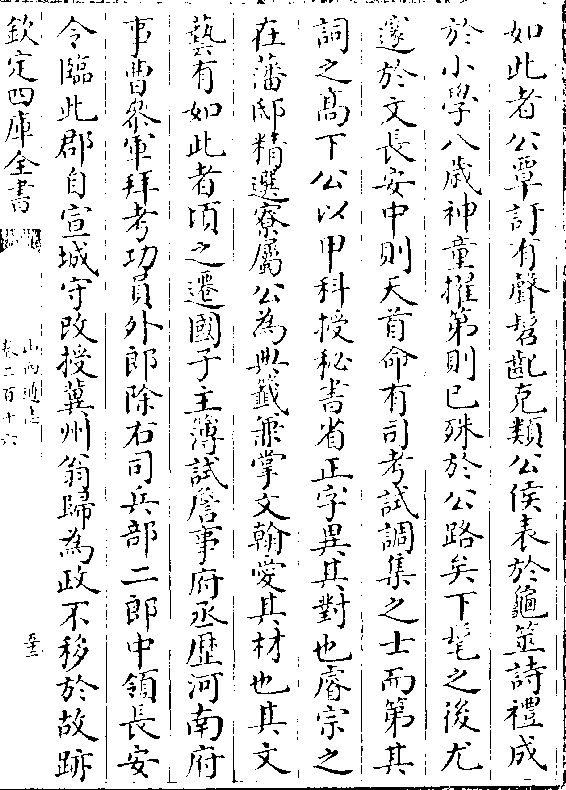 如此者公覃訏有聲髫齓克類公侯表於龜筮詩禮成
於小學八歲神童擢第則已殊於公路矣下髦之後尤
邃於文長安中則天首命有司考試調集之士而第其
詞之髙下公以甲科授秘書省正字異其對也睿宗之
在藩邸精選寮屬公為典籖兼掌文翰愛其材也其文
藝有如此者頃之遷國子主簿試詹事府丞歴河南府
事曹叅軍拜考功員外郎除右司兵部二郎中領長安
令臨此郡自宣城守改授冀州翁歸為政不移於故跡
欽定四庫全書
山西通志
卷二百十六